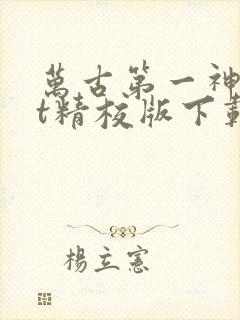 萬古第一神
t精校版下載
楊立憲